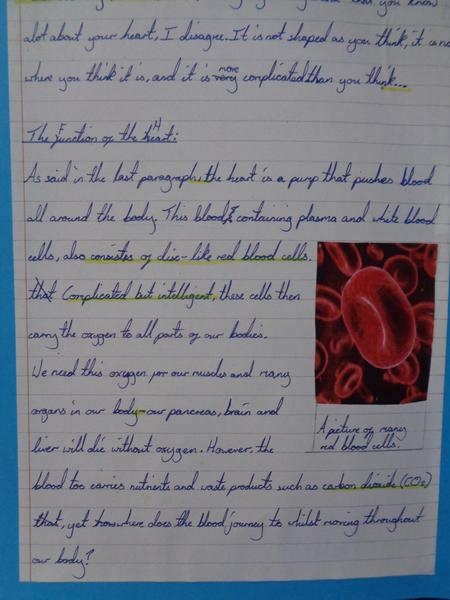 that you know
alot about your heart, I disagree. It is not shaped as you think, it is no
where you think it is, and it is very more complicated than you think...
The Function of the Heart:
As said in the last paragraph, the heart is a pump that pushes blood
all around the body. This blood, containing plasma and white blood
cells, also consistes of disc-like red blood cells.
that Complicated but intelligent, these cells then
carry the oxygen to all parts of our bodies.
We need this oxygen for our muscles and many
organs in our body-our pancreas, brain and
liver will die without oxygen. However, the
blood too carries nutrients and waste products such as carbon dioxide (CO2)
that, yet how where does the blood journey to whilst moving throughout
our body?
A picture of many
red blood cells.